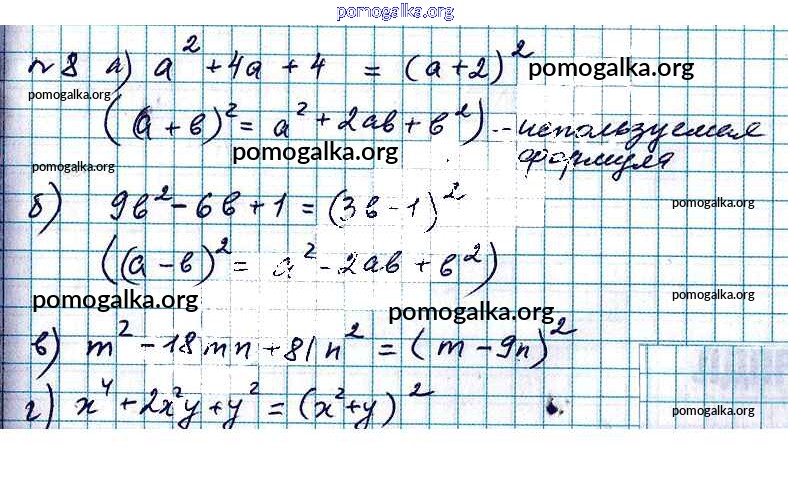 pomogalka.org
№8 а) a² + 4a + 4 = (a+2)² pomogalka.org
pomogalka.org
(a + b)² = a² + 2ab + b²) - используемая
pomogalka.org
формула
pomogalka.org
б) 9b² - 6b + 1 = (3b - 1)² pomogalka.org
((a - b)² = a² - 2ab + b²)
pomogalka.org pomogalka.org pomogalka.org
в) m² - 18mn + 81n² = (m - 9n)²
г) x⁴ + 2x²y + y² = (x² + y)² pomogalka.org